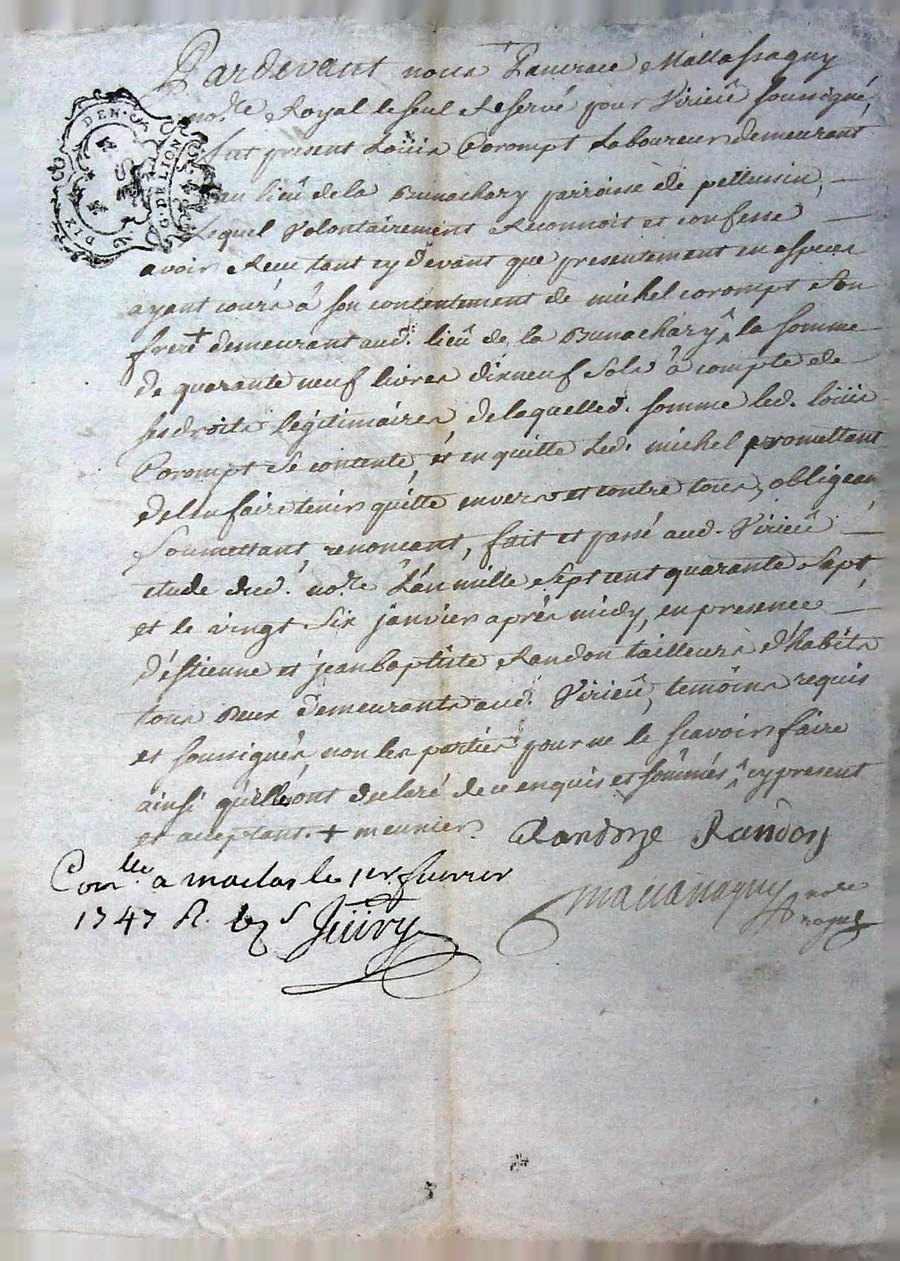 Pardevant nous Pancrace Mallassagny
no.re Royal le seul Reservé pour Virieû soussigné,
fut present Loüis Corompt Laboureur demeurant
au lieû de la Bunachary parroisse de pellussin,
Lequel Volontairement Reconnoit et confesse
avoir Receu tant cy devant que presentement en especes
ayant cours â son contentement de michel corompt son
frere + demeurant aud. lieû de la Bunachary ^ la somme
de quarante neuf livres dixneuf sols â compte de
ses droits légitimaires de laquelle d. somme led. loüis
Corompt se contente, et en quitte Led. michel promettant
de l'en faire tenir quitte envers et contre tous, obligeant
soumettant, renoncant, fait et passé aud. Virieû
etude dud. no.re L'an mille sept cent quarante sept
et le vingt six janvier après midy, en presence
d'estienne et jean baptiste Randon tailleurs d'habits
tous deux demeurants aud. Virieû, temoins requis
et soussignés, non les parties pour ne le scavoir faire
ainsi qu'elles ont declaré de ce enquis et sommés ^ cy present
et aceptant. + meunier.
Randon Randon
Con.lle a maclas le 1er. feuvrier
1747 R. s
Mallassagny no.re
royal
DEN.
G. DE LION